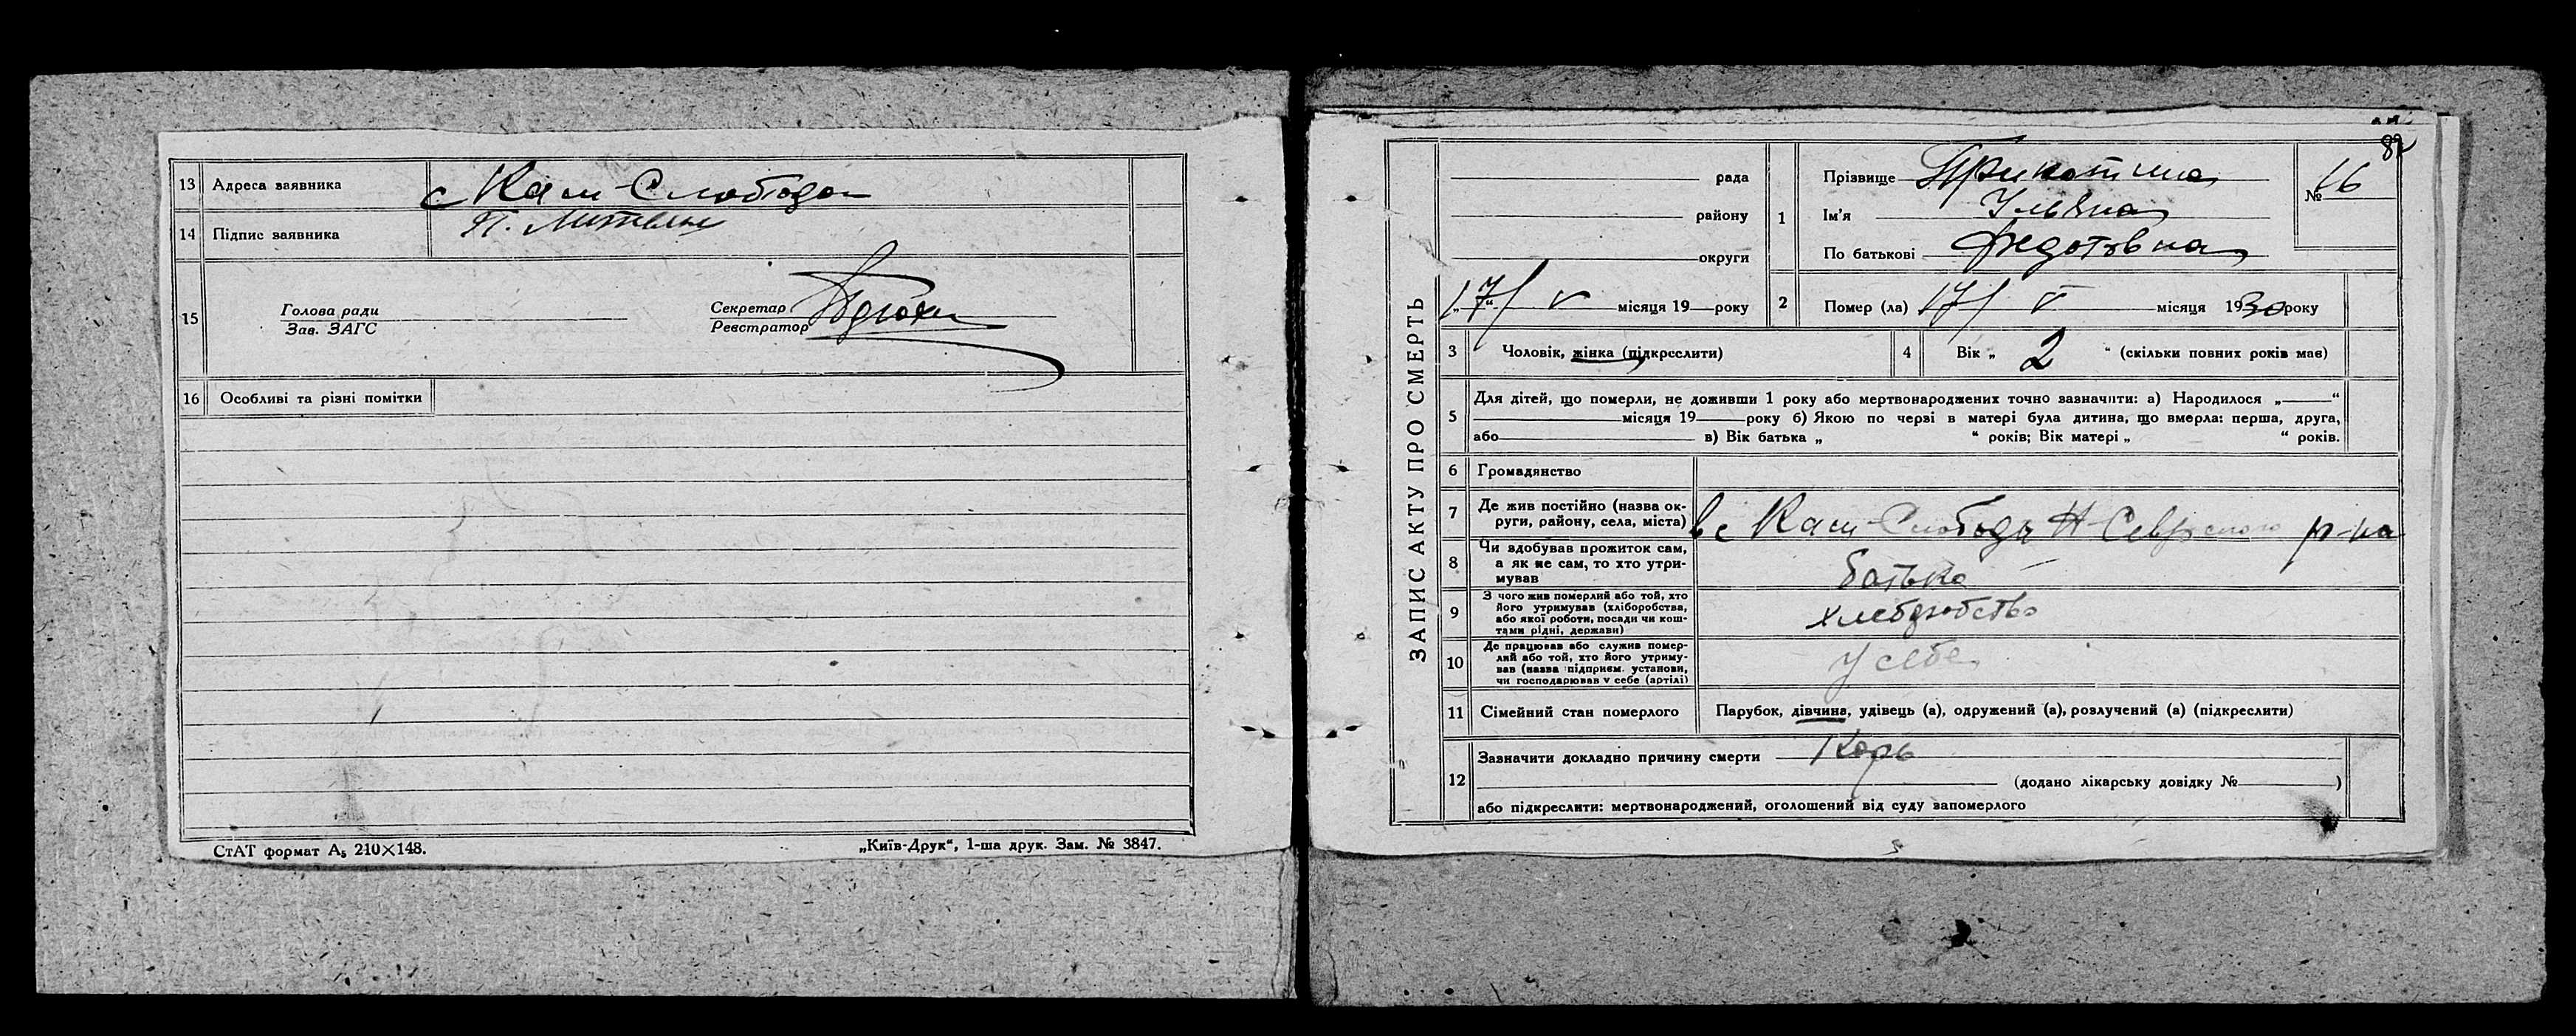 13 Адреса заявника с Кам-Слобода
14 Підпис заявника П.
15 Голова ради
Зав. ЗАГС
Секретар
Реєстратор
16 Особливі та різні помітки
СтАТ формат А₅ 210×148.
„Київ-Друк“, 1-ша друк. Зам. № 3847.
82
ЗАПИС АКТУ ПРО СМЕРТЬ
рада
району
округи
17/ V місяця 19 року
1 Прізвище
Ім'я Ульяна
По батькові Федотовна
№ 16
2 Помер (ла) 17/ V місяця 1930 року
3 Чоловік, жінка (підкреслити)
4 Вік „ 2 “ (скільки повних років мав)
5 Для дітей, що померли, не доживши 1 року або мертвонароджених точно зазначити: а) Народилося „ “
місяця 19 року б) Якою по черві в матері була дитина, що вмерла: перша, друга,
або в) Вік батька „ “ років; Вік матері „ “ років.
6 Громадянство
7 Де жив постійно (назва ок-
руги, району, села, міста)
в с Кам-Слободе Н-Северского р-на
8 Чи здобував прожиток сам,
а як не сам, то хто утри-
мував
батько
9 З чого жив померлий або той, хто
його утримував (хліборобства,
або якої роботи, посади чи кош-
тами рідні, держави)
хлеборобство
10 Де працював або служив помер-
лий або той, хто його утриму-
вав (назва підприєм. установи,
чи господарював у себе (артілі)
у себе
11 Сімейний стан померлого
Парубок, дівчина, удівець (а), одружений (а), розлучений (а) (підкреслити)
12 Зазначити докладно причину смерти Корь
(додано лікарську довідку № )
або підкреслити: мертвонароджений, оголошений від суду запомерлого